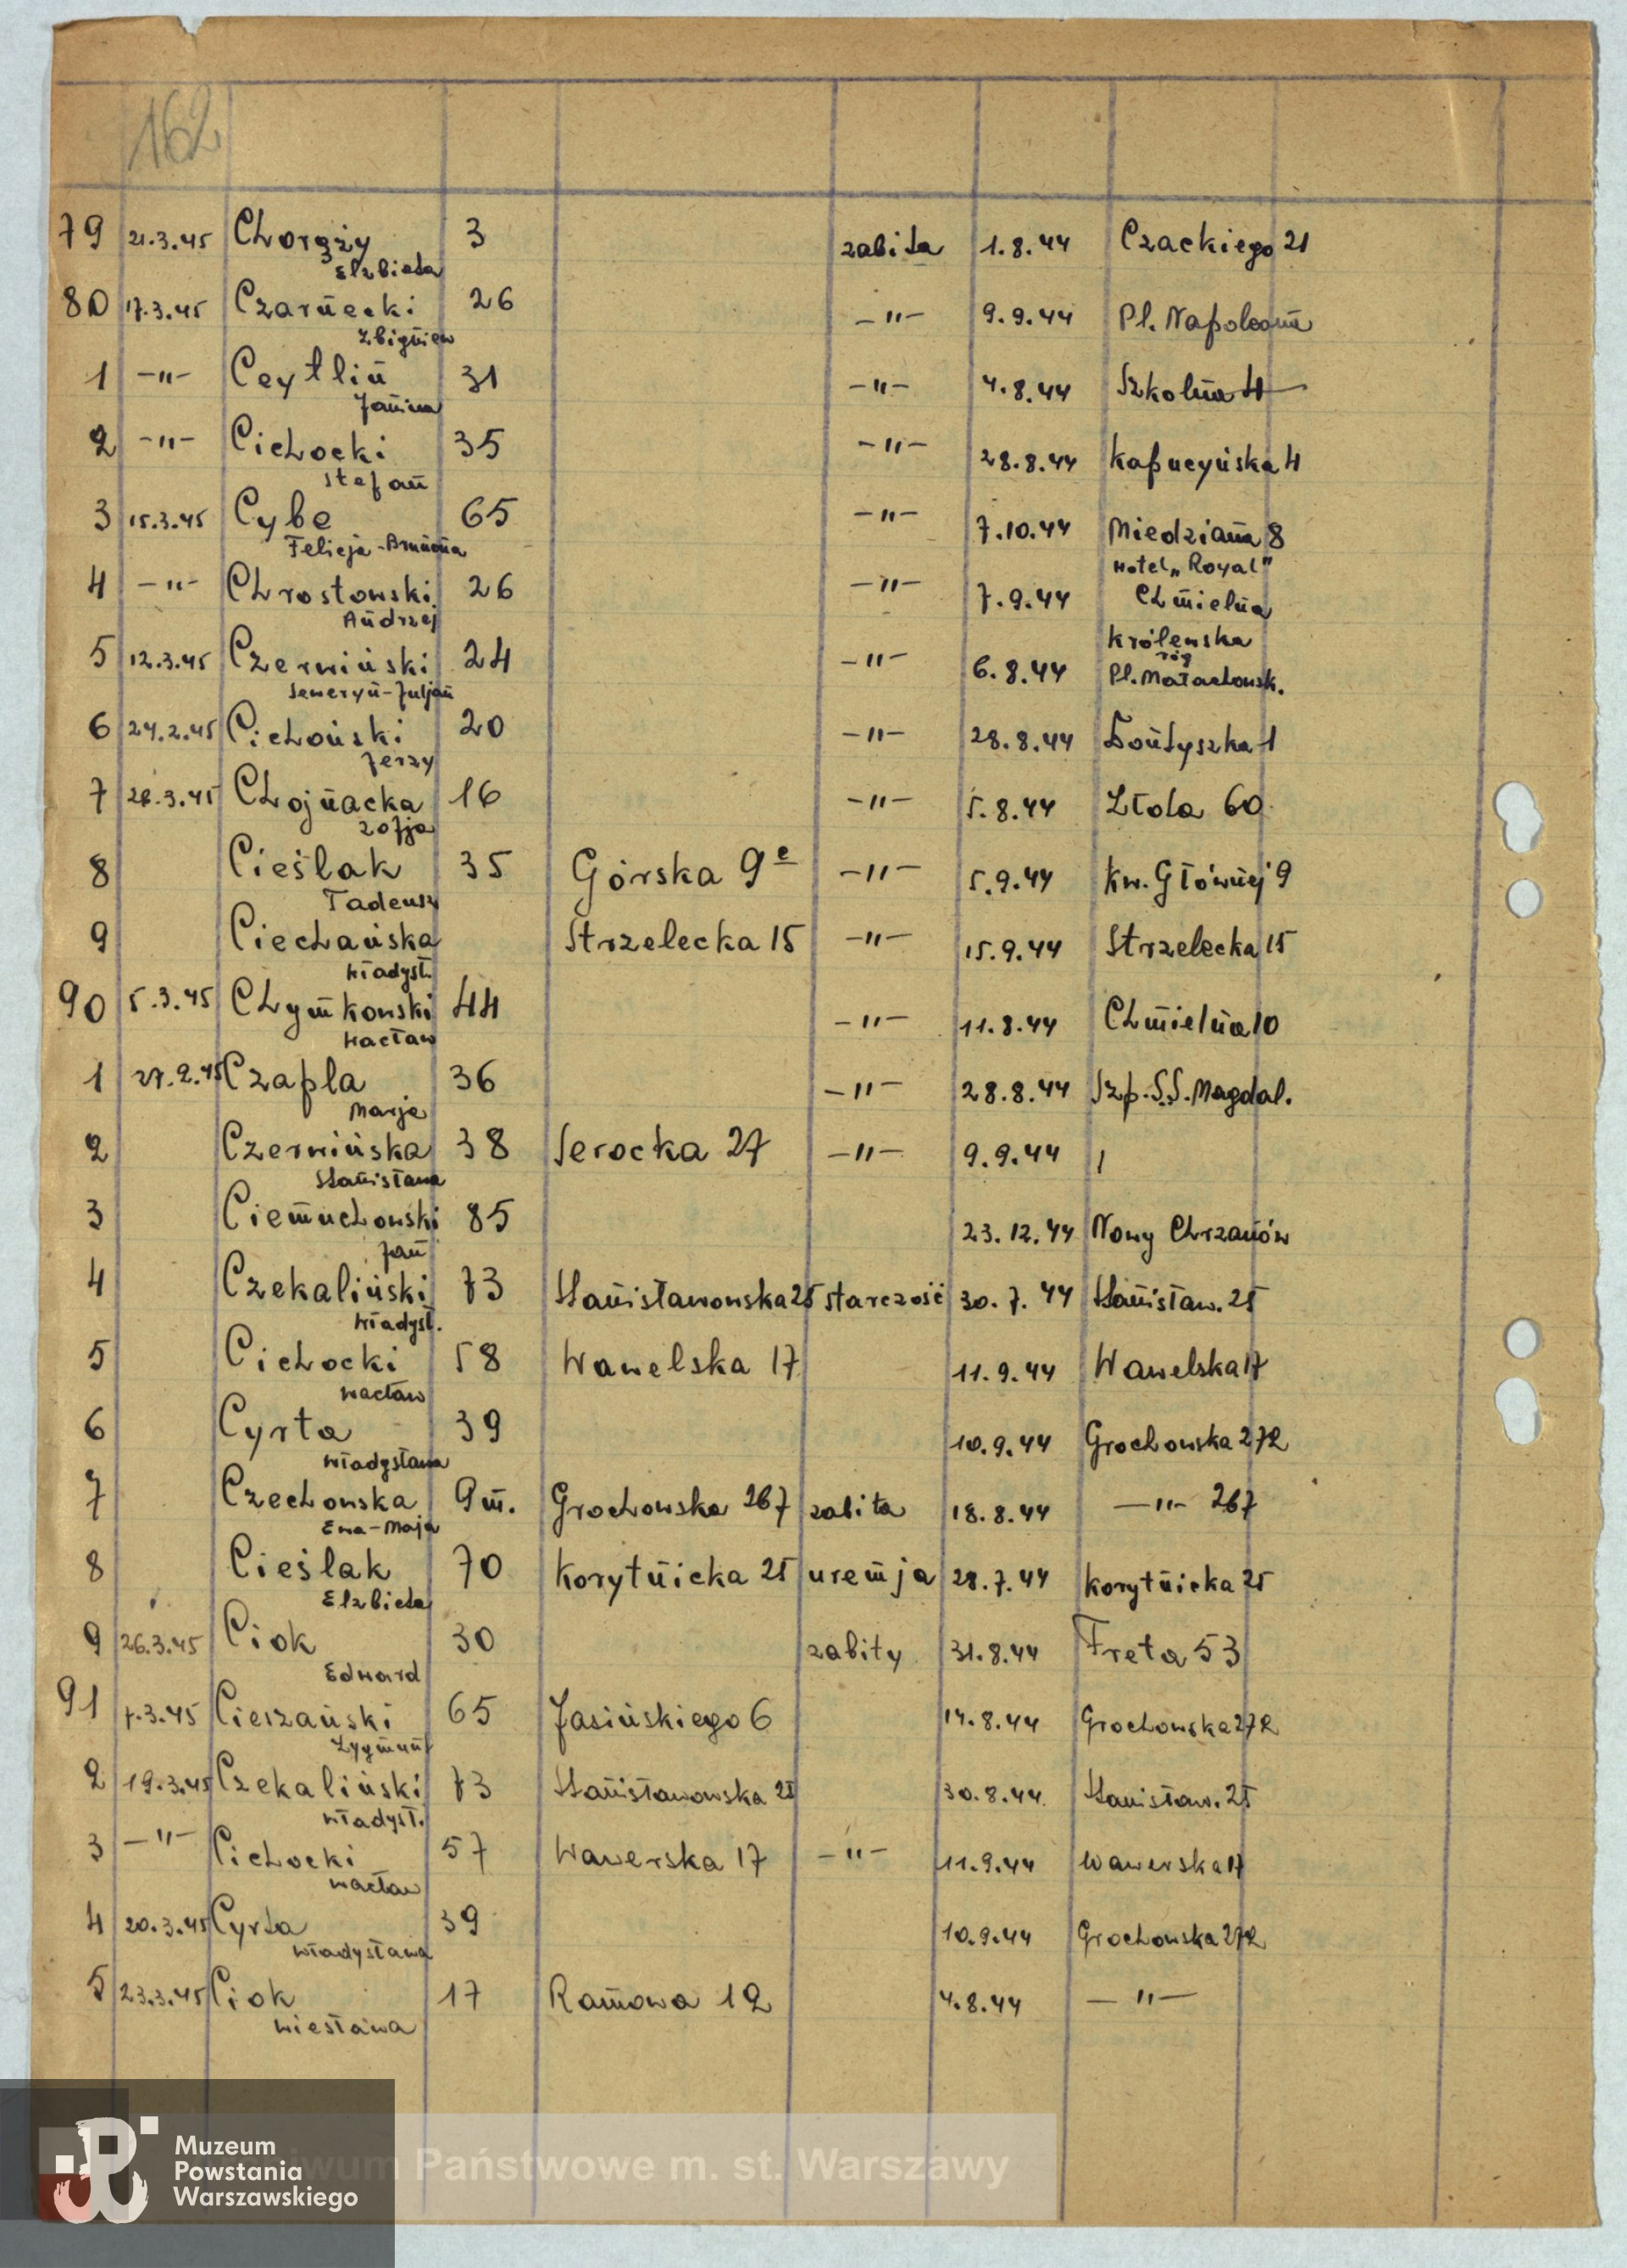 162
79 21.3.45 Chorąży 3 zabita 1.8.44 Czackiego 21
Elżbieta
80 17.3.45 Czarnecki 26 —"— 9.9.44 Pl. Napoleona
Zbigniew
1 —"— Ceytlin 31 —"— 4.8.44 Szkolna 4
Janina
2 —"— Cichocki 35 —"— 28.8.44 Kapucyńska 4
Stefan
3 15.3.45 Cybe 65 —"— 7.10.44 Miedziana 8
Felicja - Brunona
4 —"— Chrostowski 26 —"— 7.9.44 Hotel „Royal" Chmielna
Andrzej
5 12.3.45 Czerwiński 24 —"— 6.8.44 Królewska róg Pl. Małachowsk.
Seweryn-Juljan
6 24.2.45 Cichoński 20 —"— 28.8.44 1
Jerzy
7 28.3.45 Chojnacka 16 —"— 5.8.44 Złota 60
Zofja
8 Cieślak 35 Górska 9e —"— 5.9.44 Kw. Głównej 9
Tadeusz
9 Ciechańska Strzelecka 15 —"— 15.9.44 Strzelecka 15
Władysł.
90 5.3.45 Chymkowski 44 —"— 11.8.44 Chmielna 10
Wacław
1 27.2.45 Czapla 36 —"— 28.8.44 Szp. S.S. Magdal.
Marja
2 Czerwińska 38 Serocka 27 —"— 9.9.44
Stanisława
3 Ciemuchowski 85 23.12.44 Nowy Chrzanów
Jan
4 Czekaliński 73 Stanisławowska 25 starczość 30.7.44 Stanisław. 25
Władysł.
5 Cichocki 58 Wawelska 17 11.9.44 Wawelska 17
Wacław
6 Cyrta 39 10.9.44 Grochowska 272
Władysława
7 Czechowska 9 m. Grochowska 267 zabita 18.8.44 —"— 267
Ewa-Maja
8 Cieślak 70 Korytnicka 25 uremja 28.7.44 Korytnicka 25
Elżbieta
9 26.3.45 Ciok 30 zabity 31.8.44 Freta 53
Edward
91 7.3.45 Cieszański 65 Jasińskiego 6 14.8.44 Grochowska 272
Zygmunt
2 19.3.45 Czekaliński 73 Stanisławowska 25 30.8.44 Stanisław. 25
Władysł.
3 —"— Cichocki 57 Wawerska 17 —"— 11.9.44 Wawerska 17
Wacław
4 20.3.45 Cyrta 39 10.9.44 Grochowska 272
Władysława
5 23.3.45 Ciok 17 Ramowa 12 4.8.44 —"—
Wiesława
Muzeum
Powstania
Warszawskiego
Państwowe m. st. Warszawy